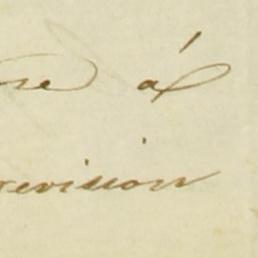 se á
revision